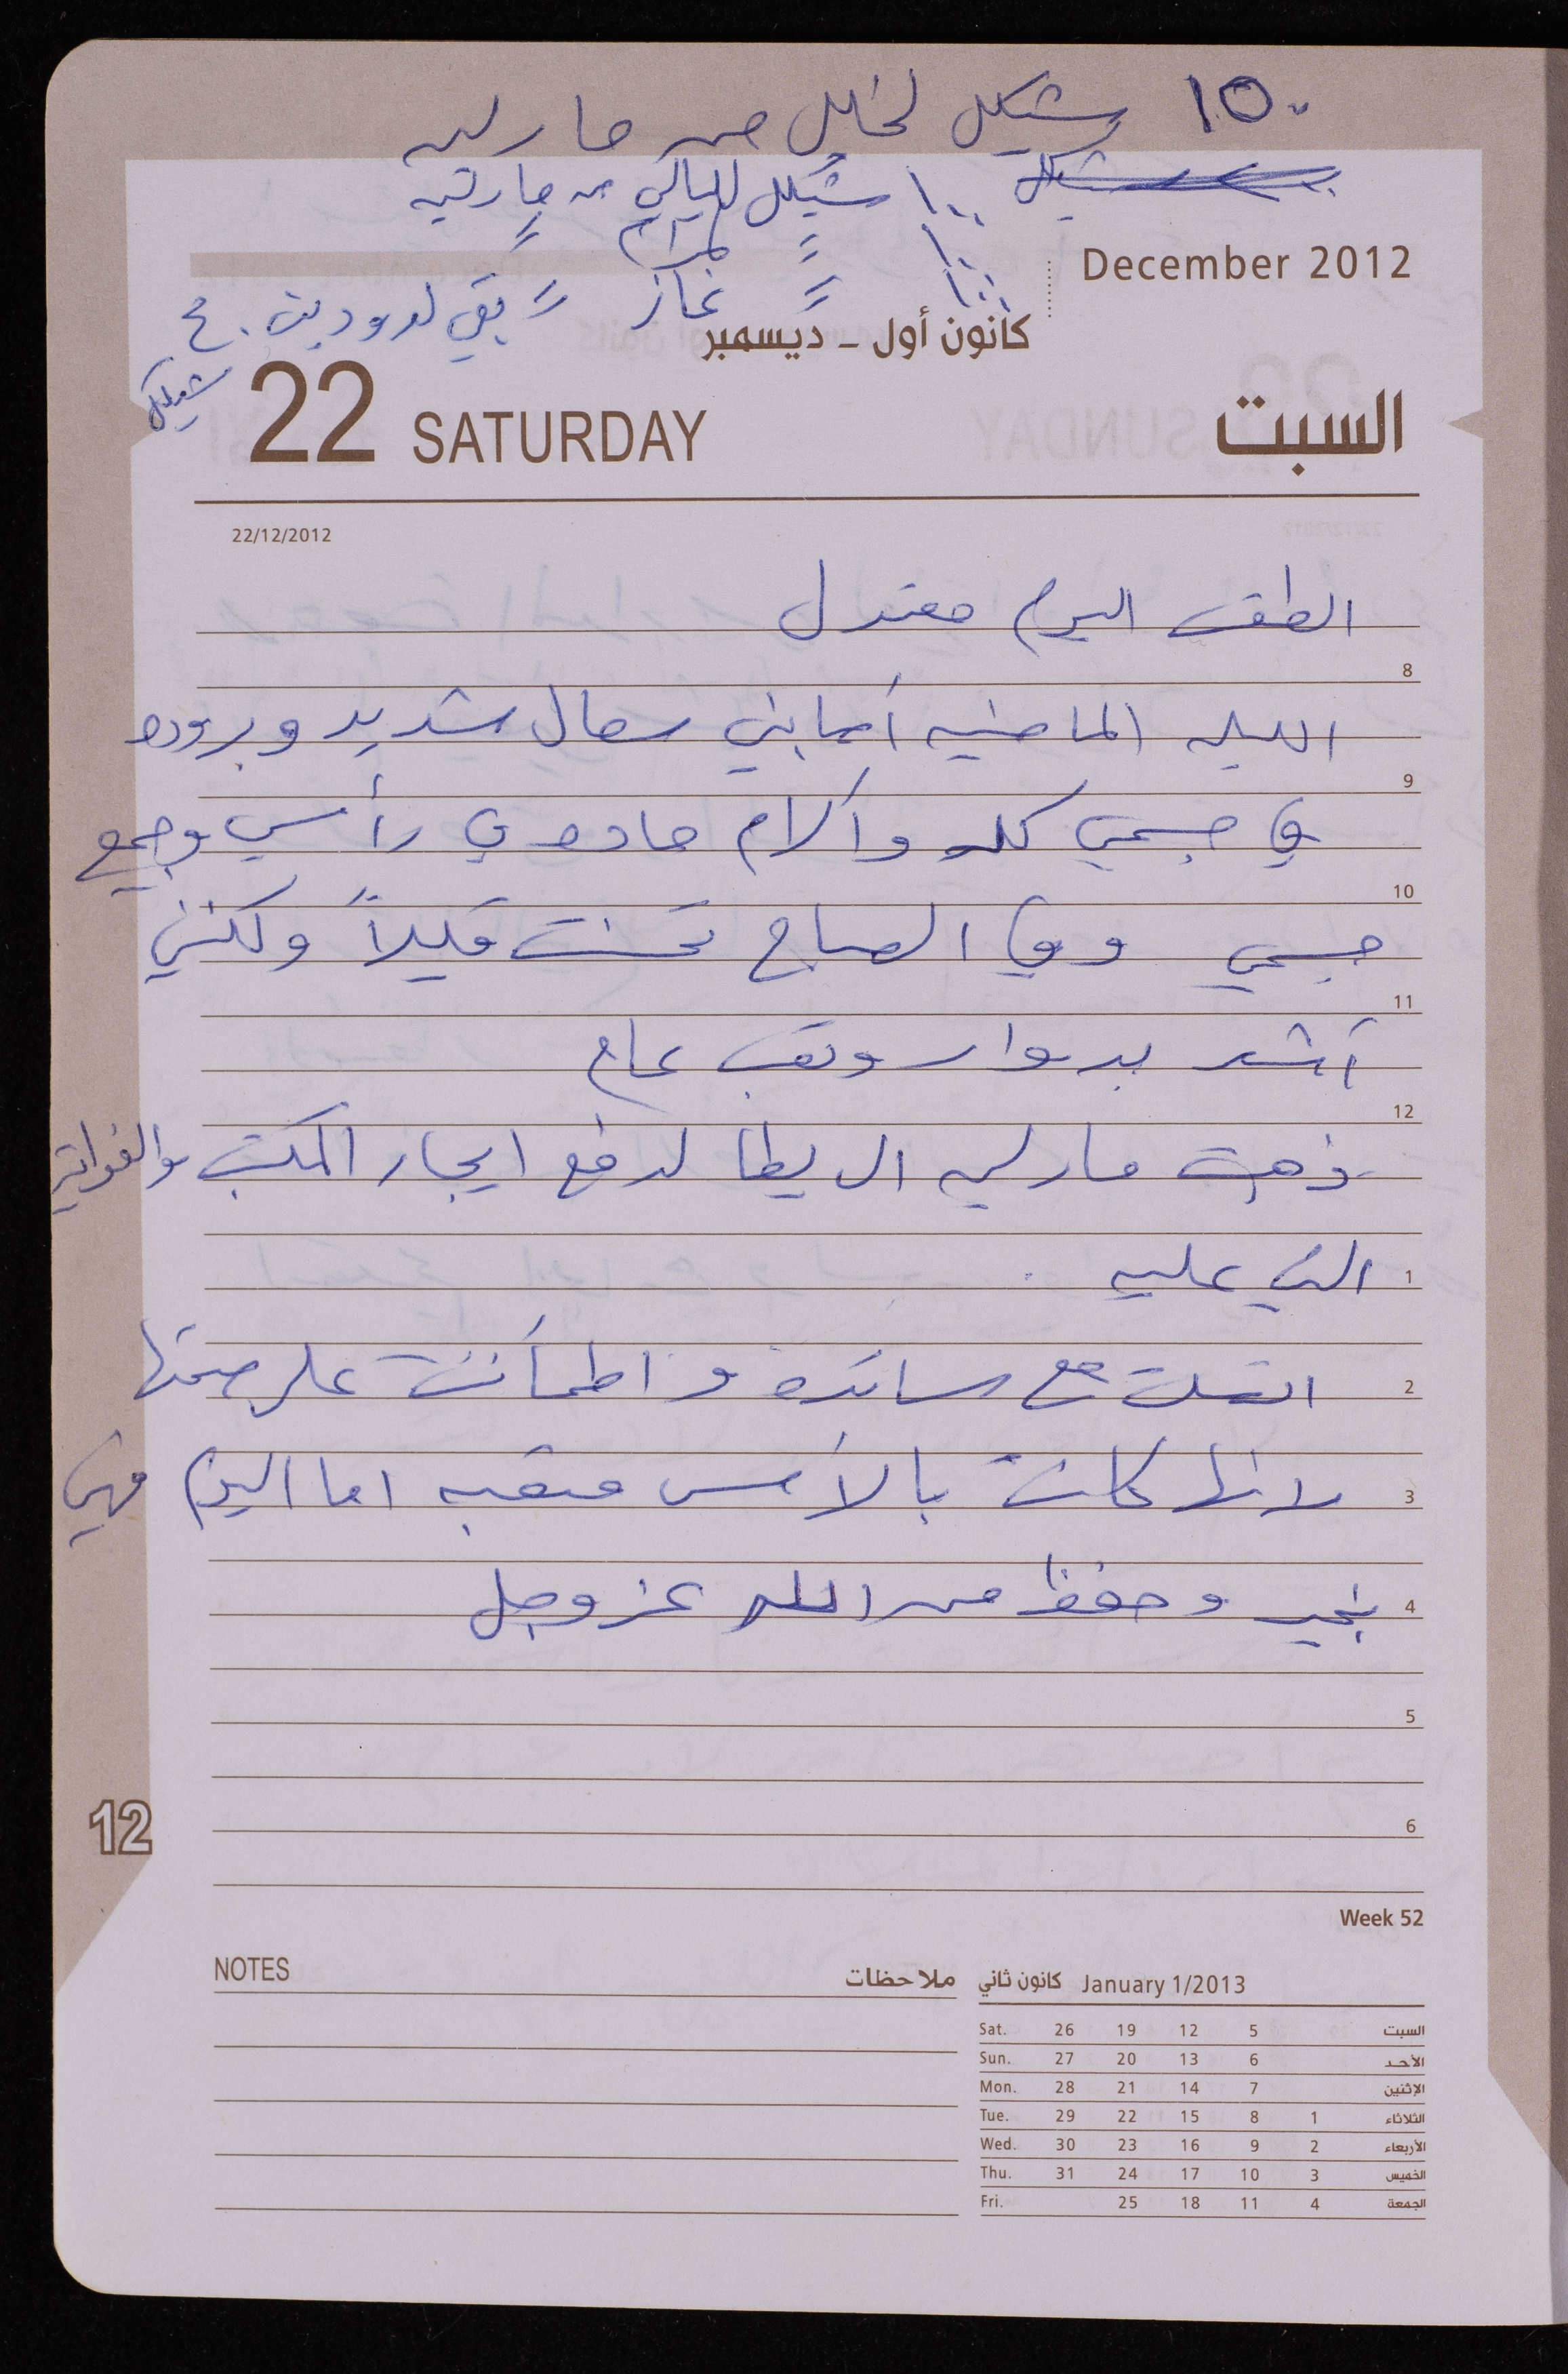 ١٥٠ شيكل لخليل من مارلين
شيكل ١٠٠ شيكل لليالي من مارلين
١٠٠ = لمرام =
١٠٠ = غاز = بقي لدوديت ٤٠
شيكل
December 2012
كانون أول - ديسمبر
22 SATURDAY السبت
22/12/2012
الطقس اليوم معتدل
8
الليله الماضيه أصابني سعال شديد وبروده
9
في جسمي كله وآلام حاده في رأسي وجميع
10
جسمي وفي الصباح تحسنت قليلاً ولكنني
11
أشعر بدوار وتعب عام
12
ذهبت مارلين الى يطا لدفع ايجار المكتب والفواتير
التي عليه
1
اتصلت مع سائده و اطمأننت على صحتها
2
لانها كانت بالأمس متعبه اما اليوم فهي
3
بخير وحفظ من الله عز وجل
4
5
12
6
Week 52
NOTES ملاحظات
كانون ثاني January 1/2013
Sat. 26 19 12 5 السبت
Sun. 27 20 13 6 الأحد
Mon. 28 21 14 7 الإثنين
Tue. 29 22 15 8 1 الثلاثاء
Wed. 30 23 16 9 2 الأربعاء
Thu. 31 24 17 10 3 الخميس
Fri. 25 18 11 4 الجمعة